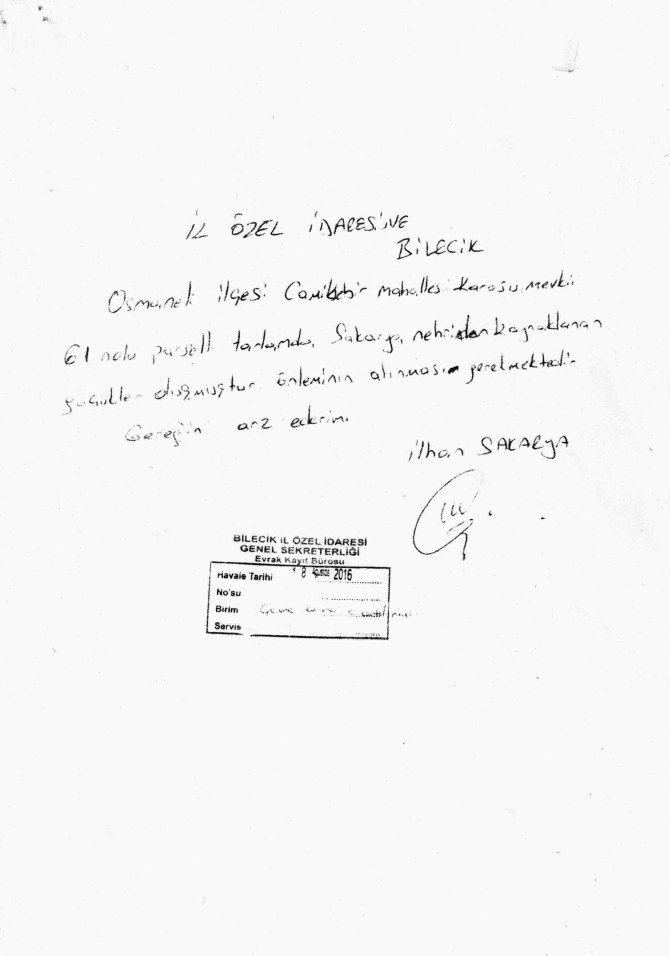 İL ÖZEL İDARESİNE
BİLECİK
Osmaneli ilçesi Camikebir mahallesi Karasu mevkii
61 nolu parselli tarlamda, Sakarya nehrinden kaynaklanan
göçükler oluşmuştur. önleminin alınması gerekmektedir
Gereğini arz ederim.
ilhan SAKARYA
BİLECİK İL ÖZEL İDARESİ
GENEL SEKRETERLİĞİ
Evrak Kayıt Bürosu
Havale Tarihi 18 Ağustos 2016
No'su
Birim Çevre
Servis